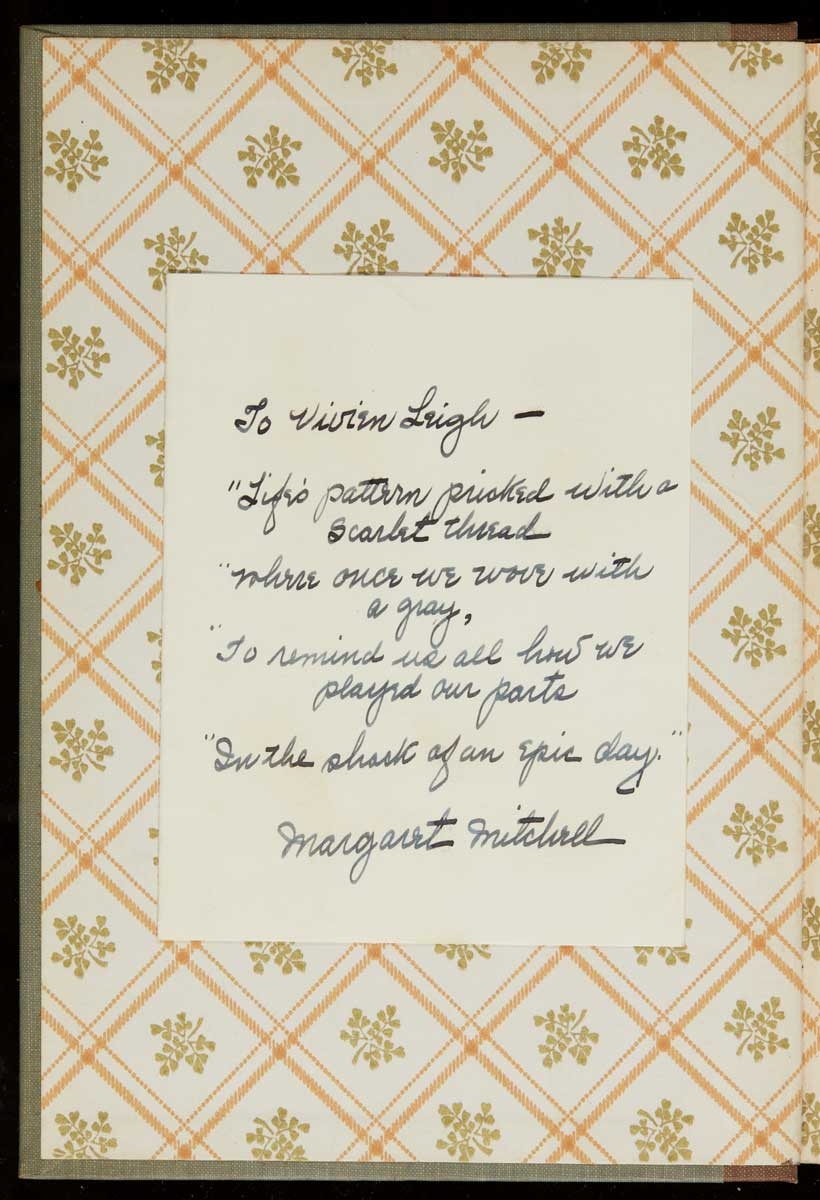 To Vivien Leigh —
"Life's pattern pricked with a
scarlet thread
"Where once we wove with
a gray,
"To remind us all how we
played our parts
"In the shock of an epic day."
Margaret Mitchell